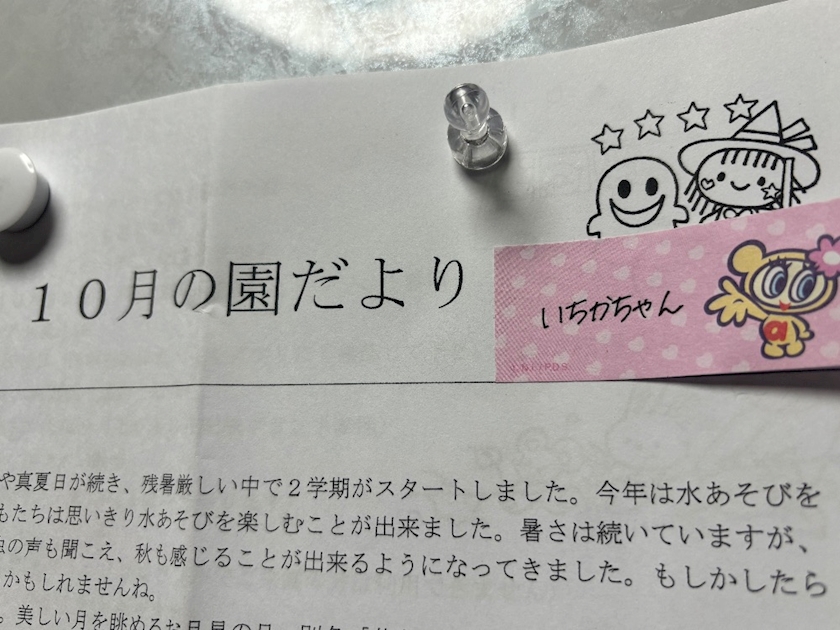 10月の園だより
いちかちゃん
や真夏日が続き、残暑厳しい中で2学期がスタートしました。今年は水あそびを
もたちは思いきり水あそびを楽しむことが出来ました。暑さは続いていますが、
の声も聞こえ、秋も感じることが出来るようになってきました。もしかしたら
かもしれませんね。
。美しい月を眺めるお月見の日